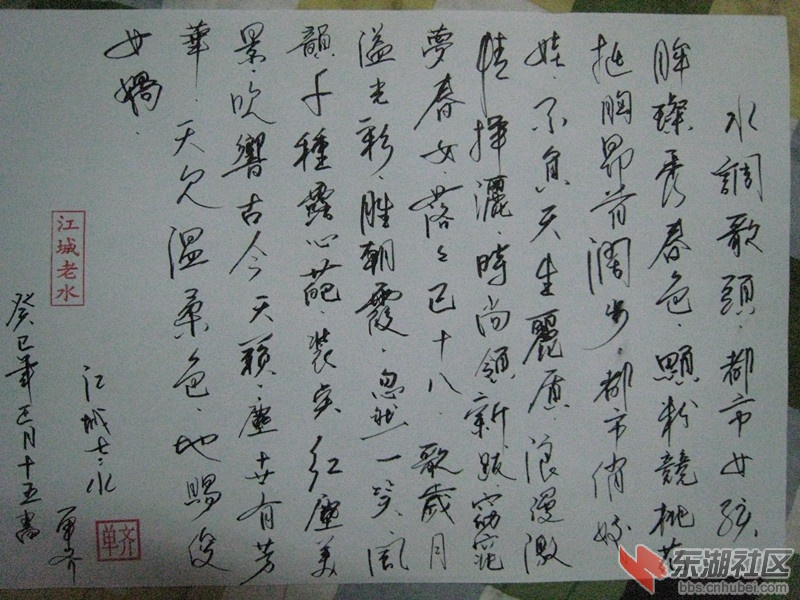 水調歌頭·都市女孩
眸璨秀春色·顋粉競桃花
挺胸昂首闊步·都市俏嬌
娃·不負天生麗質·浪漫激
情揮灑·時尚領新跋·窈窕
夢春女·落々已十八· 歌歲月
溢光彩·勝朝霞·忽然一笑·風
韻千種露心葩·裝點紅塵美
景·吹響古今天籟·塵世有芳
華·天久溫柔色·地賜俊
女媧·
江城老水
江城老水 单齐
癸巳年正月十五書
单齐
东湖社区
bbs.cnhubei.com